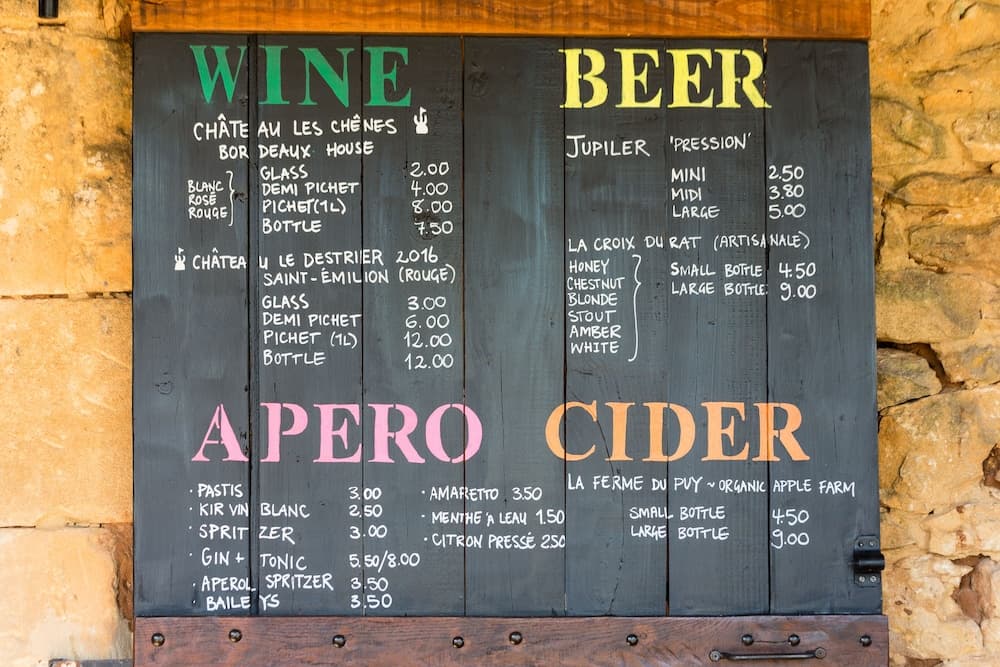 WINE
CHÂTEAU LES CHÊNES
BORDEAUX HOUSE
BLANC
ROSÉ
ROUGE
GLASS 2.00
DEMI PICHET 4.00
PICHET (1L) 8.00
BOTTLE 7.50
CHÂTEAU LE DESTRIER 2016
SAINT-ÉMILION (ROUGE)
GLASS 3.00
DEMI PICHET 6.00
PICHET (1L) 12.00
BOTTLE 12.00
BEER
JUPILER 'PRESSION'
MINI 2.50
MIDI 3.80
LARGE 5.00
LA CROIX DU RAT (ARTISANALE)
HONEY
CHESTNUT
BLONDE
STOUT
AMBER
WHITE
SMALL BOTTLE 4.50
LARGE BOTTLE 9.00
APERO
· PASTIS 3.00
· KIR VIN BLANC 2.50
· SPRITZER 3.00
· GIN + TONIC 5.50/8.00
· APEROL SPRITZER 3.50
BAILEYS 3.50
· AMARETTO 3.50
· MENTHE À LEAU 1.50
· CITRON PRESSÉ 2.50
CIDER
LA FERME DU PUY ~ ORGANIC APPLE FARM
SMALL BOTTLE 4.50
LARGE BOTTLE 9.00